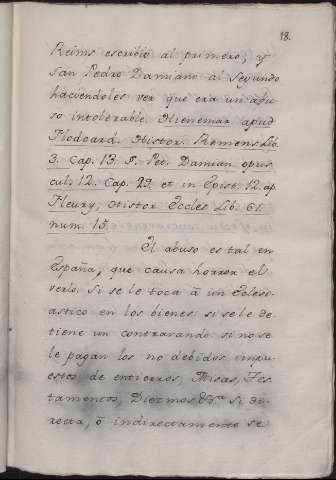 18.
Reims escribió al primero, y
San Pedro Damiano al Segundo
haciendoles ver que era un abu
so intolerable. Hienemar apud
Flodoard. Histor. Remens Lib.
3. Cap. 13. S. Pet. Damian opus
cul: 12. Cap. 29. et in Epist. 12. ap.
Fleury, Histor Eccles Lib. 61.
num. 15.
El abuso es tal en
España, que causa horror el
verlo. Si se le toca á un Ecless
astico en los bienes: si se le de
tiene un contravando: si no se
le pagan los no debidos impu
estos de entierros, Misas, Tes
tamentos, Diezmos &ª. si di
recta, ó indirectamente se